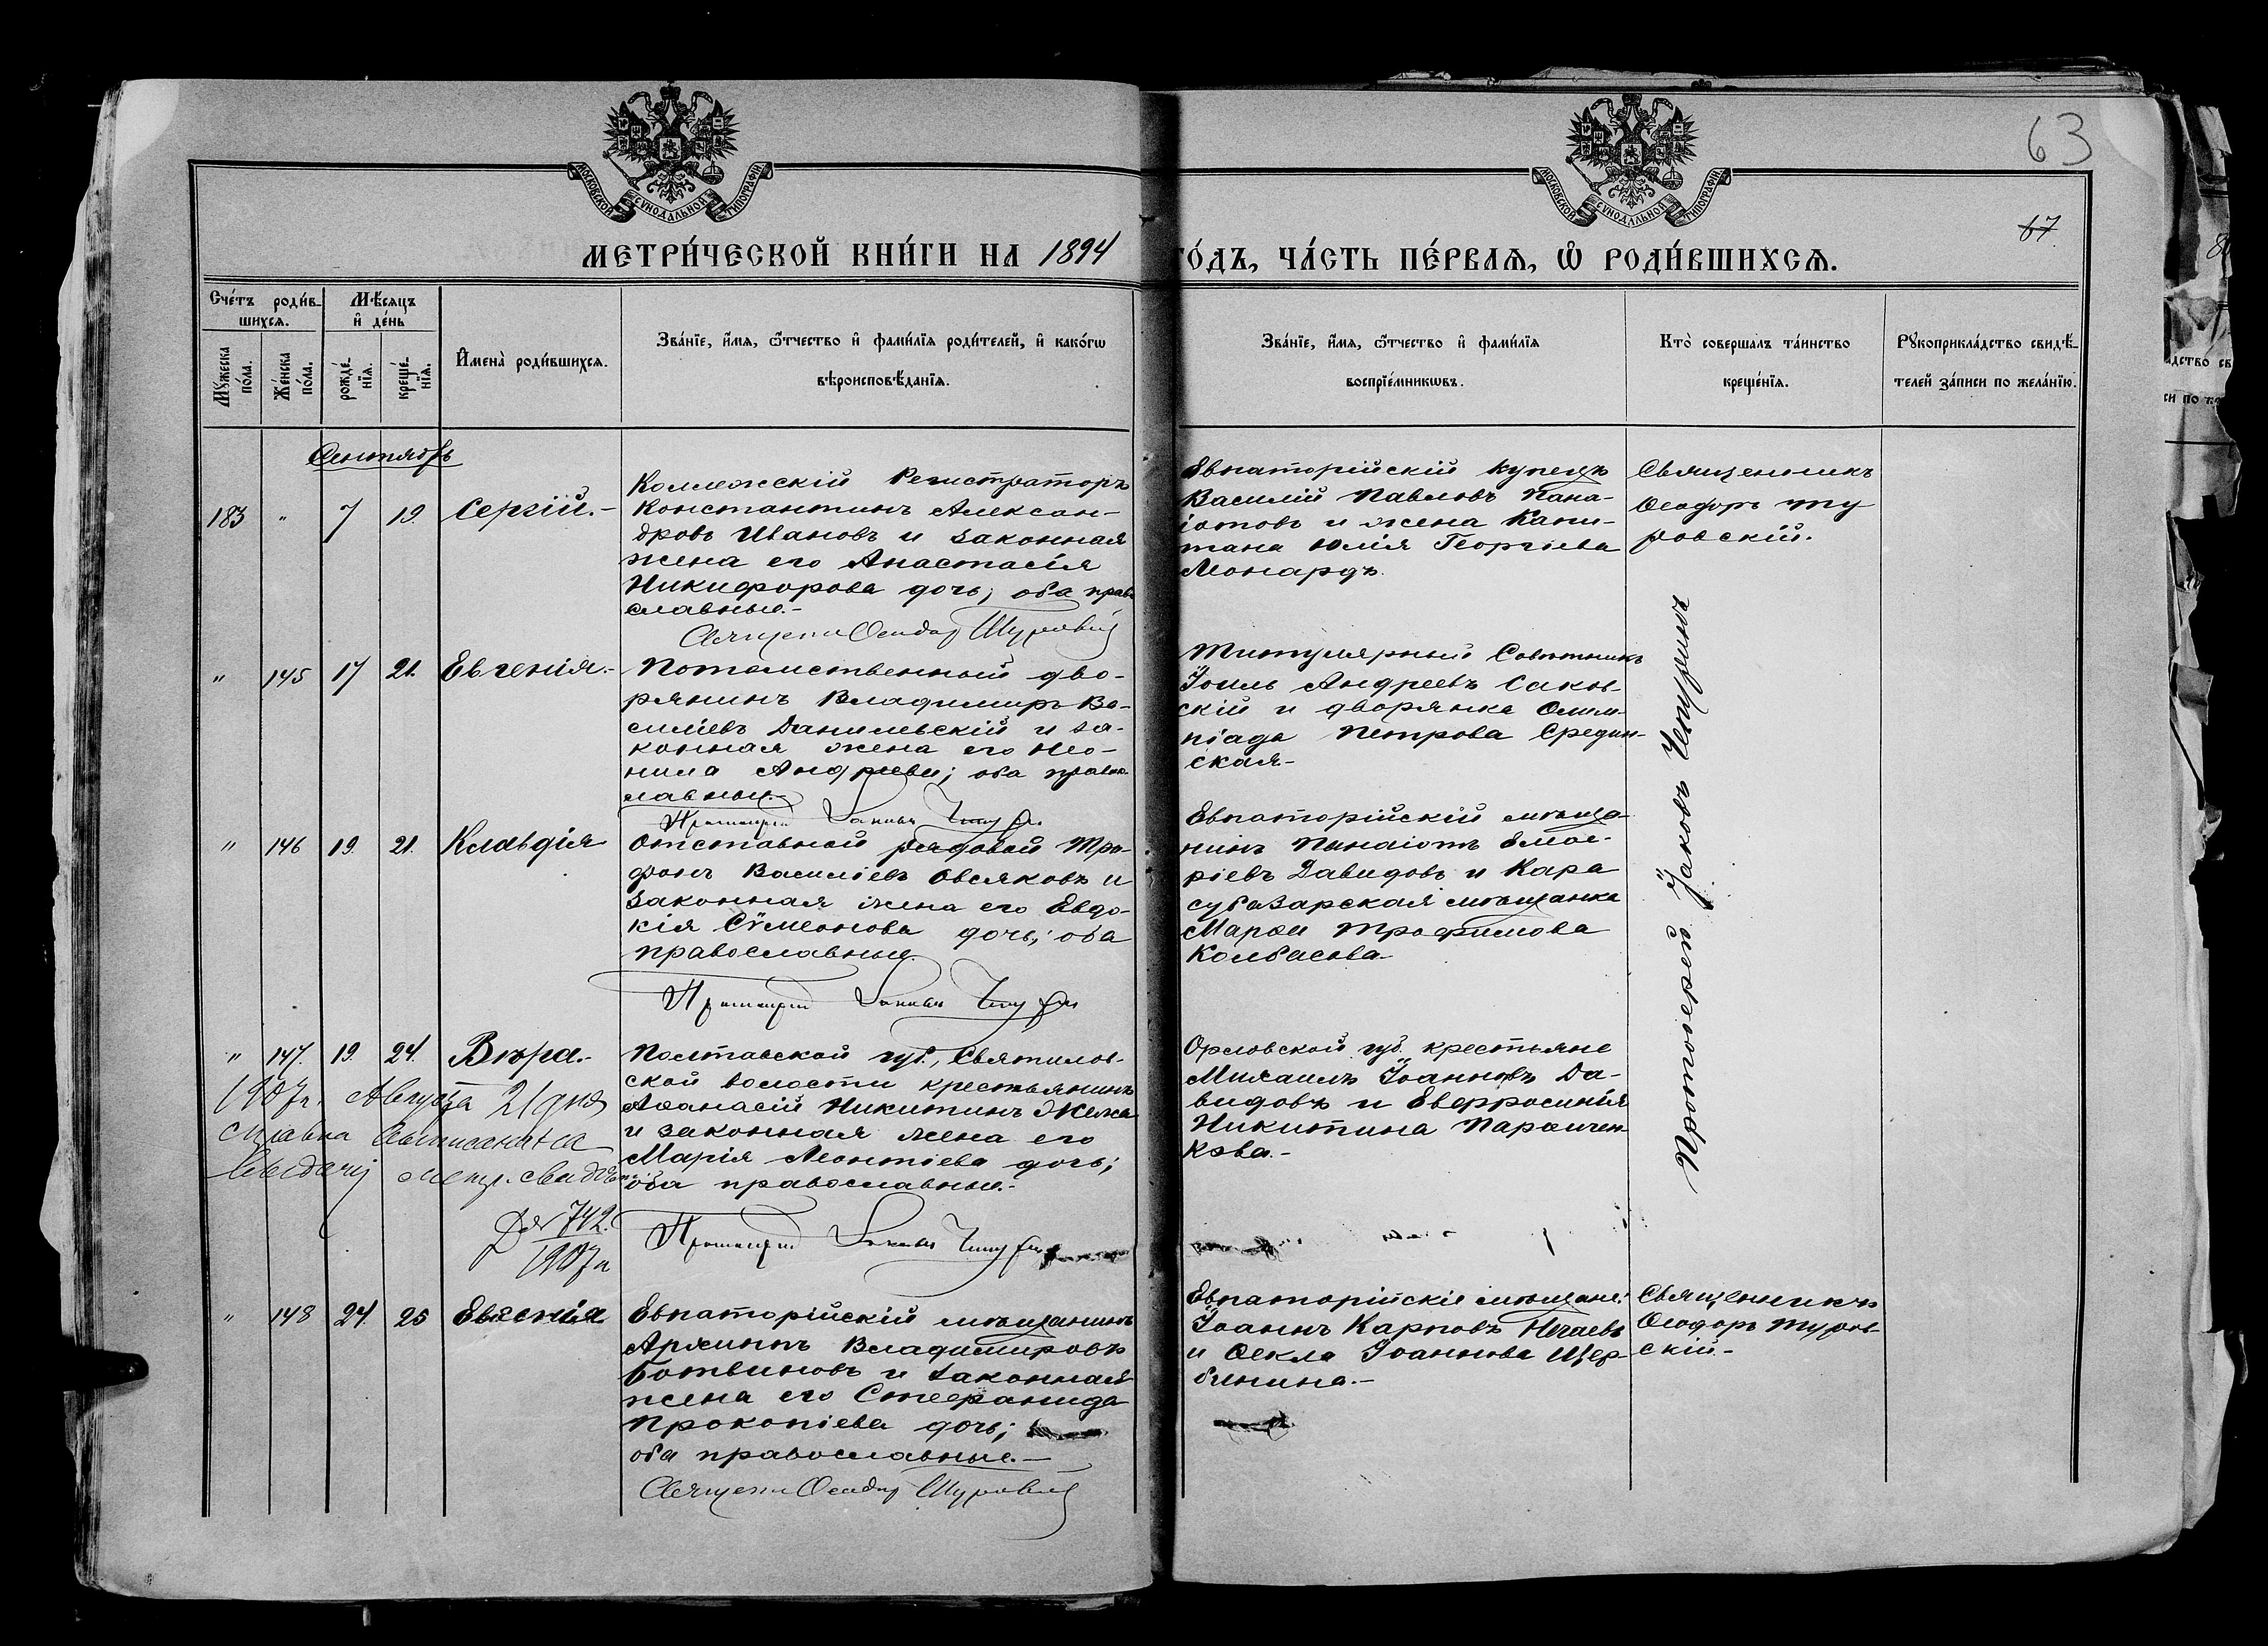 63
67
МОСКОВСКОЙ СѴНОДАЛЬНОЙ ТИПОГРАФІИ.
МОСКОВСКОЙ СѴНОДАЛЬНОЙ ТИПОГРАФІИ.
МЕТРИ́ЧЕСКОЙ КНИ́ГИ НА 1894
ГО́ДЪ, ЧА́СТЬ ПЕ́РВАѦ, Ѡ҆ РОДИ́ВШИХСѦ.
Сче́тъ роди́в-
шихсѧ.
Мꙋ́жеска
по́ла.
Же́нска
по́ла.
Мѣ́сѧцъ
и҆ де́нь
рожде́-
нїѧ.
креще́-
нїѧ.
И҆мена̀ роди́вшихсѧ.
Зва́нїе, и҆́мѧ, ѻ҆́тчество и҆ фами́лїѧ роди́телей, и҆ како́гѡ
вѣроисповѣ́данїѧ.
Зва́нїе, и҆́мѧ, ѻ҆́тчество и҆ фами́лїѧ
воспрїе́мникѡвъ.
Кто̀ соверша́лъ та́инство
креще́нїѧ.
Рꙋкоприкла́дство свидѣ́-
телей за́писи по жела́нїю.
Сентябрь
183 " 7 19. Сергій.-
Коллежскій Регистраторъ
Константинъ Алексан-
дровъ Ивановъ и законная
жена его Анастасія
Никифорова дочь; оба право
славные.-
Священ. Ѳеодор Туровскій
Евпаторійскій купецъ
Василій Павловъ Пана-
іотовъ и жена Капи-
тана Юлія Георгіева
Леонардъ.
Священникъ
Ѳеодоръ Ту
ровскій.
" 145 17 21. Евгенія.-
Потомственный дво-
рянинъ Владимиръ Ва-
силіевъ Данилевскій и за-
конная жена его Нео-
нила Андреева; оба право
славные.-
Протоіерей Іаковъ Чепуринъ
Титулярный Совѣтникъ
Іоиль Андреевъ Саков-
скій и дворянка Олим-
піада Петрова Средин-
ская.-
" 146 19. 21. Клавдія
Отставной рядовой Тро-
фонъ Василіевъ Овсяковъ и
законная жена его Евдо-
кія Сѵмеонова дочь; оба
православные.
Протоіерей Іаковъ Чепуринъ
Евпаторійскій мѣща-
нинъ Панаіотъ
ріевъ Давидовъ и Кара
субазарская мѣщанка
Марѳа Трофимова
Колбасова.
Протоіерей Іаковъ Чепуринъ
" 147. 19. 24. Вѣра.-
Полтавской губ., Святилов-
ской волости крестьянинъ
Аѳанасій Никитинъ Жежа
и законная жена его
Марія Леонтіева дочь;
оба православные.-
Протоіерей Іаковъ Чепуринъ
1907г. Августа 21 дня
справка выписана на
метр. свидѣт.
742.
1907г
Орловской губ. крестьяне
Михаилъ Іоанновъ Да-
видовъ и Евфросинія
Никитина Паромчен-
кова.-
" 148 24. 25 Евгенія
Евпаторійскій мѣщанинъ
Архиппъ Владимировъ
Ботвиновъ и законная
жена его Стефанида
Прокопіева дочь;
оба православные.-
Священ. Ѳеодор Туровскій
Евпаторійскіе мѣщане:
Іоаннъ Карповъ Нечаевъ
и Ѳекла Іоаннова Щер-
бинина.-
Священникъ
Ѳеодоръ Туров-
скій.-